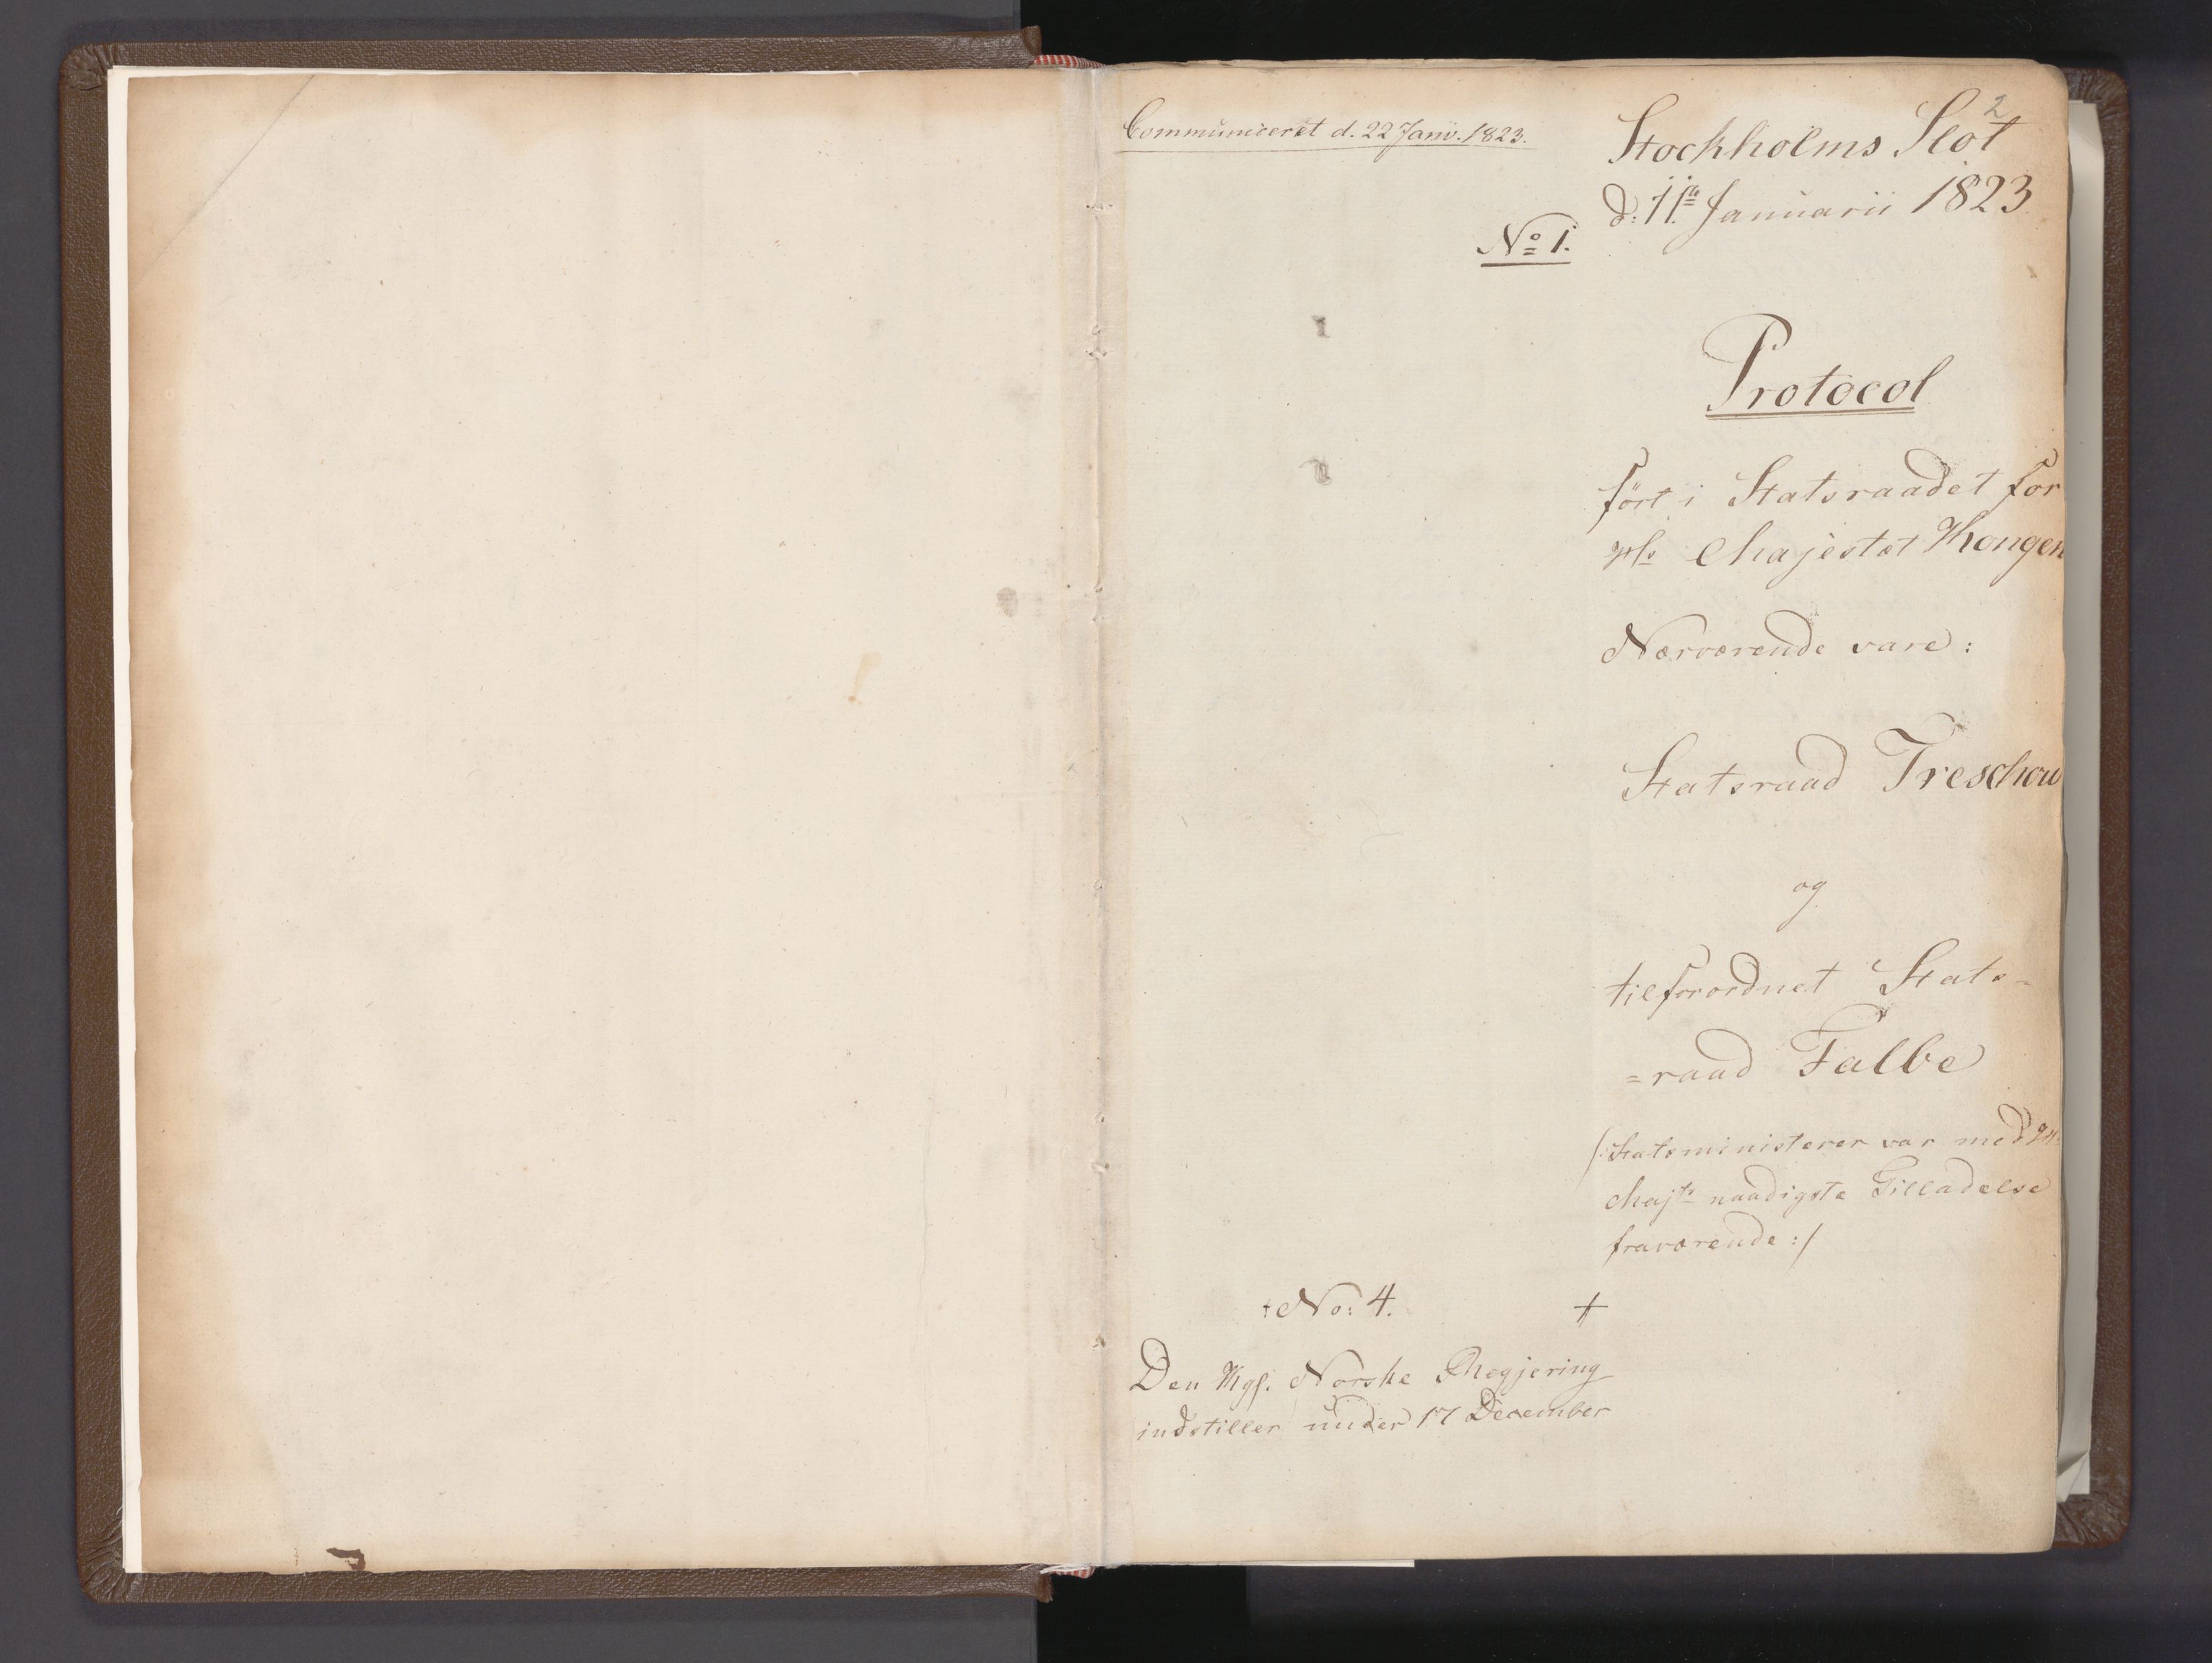 2
Communiceret d. 22 Janv. 1823.
Stockholms Slot
d: 11te Januarii 1823
No 1.
Protocol
ført i Statsraadet for
Hs Majestæt Kongen
Nærværende vare:
Statsraad Treschow
og
tilforordnet Stats=
=raad Falbe
/: Statsministeren var med Hs
Majts naadigste Tilladelse
fraværende :/
No: 4.
+
Den Kgl. Norske Regjering
indstiller under 17 December